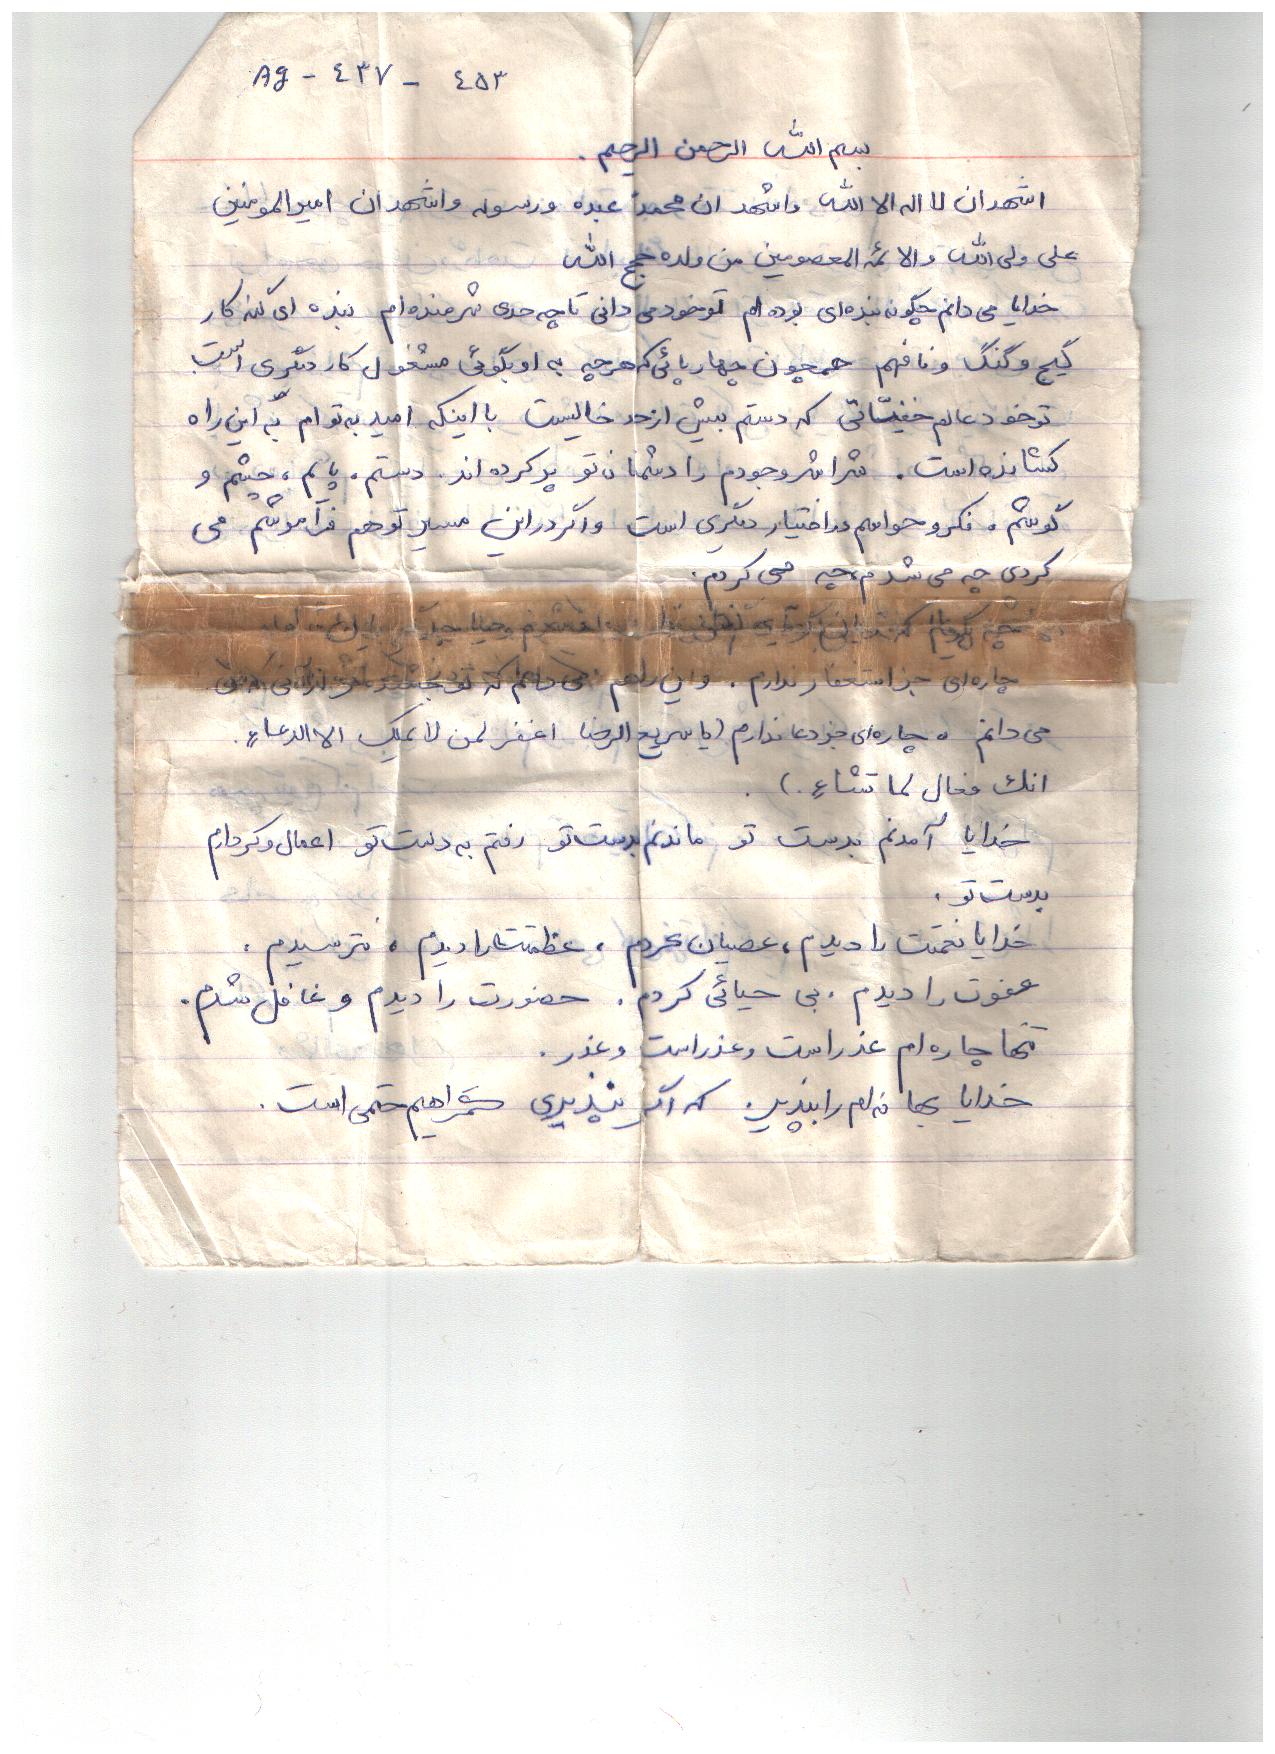 Ag - ٤٣٧ - ٤٥٣
بسم الله الرحمن الرحیم .
اشهد ان لا اله الا الله واشهد ان محمداً عبده ورسوله واشهد ان امیرالمومنین
علی ولی الله والائمه المعصومین من ولده حجج الله
خدایا می دانم چگونه بنده‌ای بوده‌ام تو خود می دانی تا چه حدی شرمنده‌ام بنده ای گنه کار
گیج و گنگ و نافهم همچون چهارپائی که هرچه به او بگوئی مشغول کار دیگری است
تو خود عالم خفیاتی که دستم بیش از حد خالیست با اینکه امید به توام به این راه
کشانده است . شراشر وجودم را دشمنان تو پر کرده اند . دستم ، پایم ، چشم و
گوشم ، فکر و حواسم در اختیار دیگری است و اگر در این مسیر تو هم فراموشم می
کردی چه می شدم چه می کردم .
چاره‌ای جز استغفار ندارم . و این را هم می دانم که تو
می دانم ، چاره‌ای جز دعا ندارم (یا سریع الرضا اغفر لمن لا یملک الا الدعاء .
انک فعال لما تشاء .) .
خدایا آمدنم بدست تو ماندنم بدست تو رفتنم به دست تو اعمال و کردارم
بدست تو .
خدایا نعمتت را دیدم ، عصیان کردم ، عظمتت را دیدم ، نترسیدم ،
عفوت را دیدم ، بی حیائی کردم . حضورت را دیدم و غافل شدم .
تنها چاره ام عذر است و عذر است و عذر .
خدایا بهانه‌ام را بپذیر . که اگر نپذیری گمراهیم حتمی است .